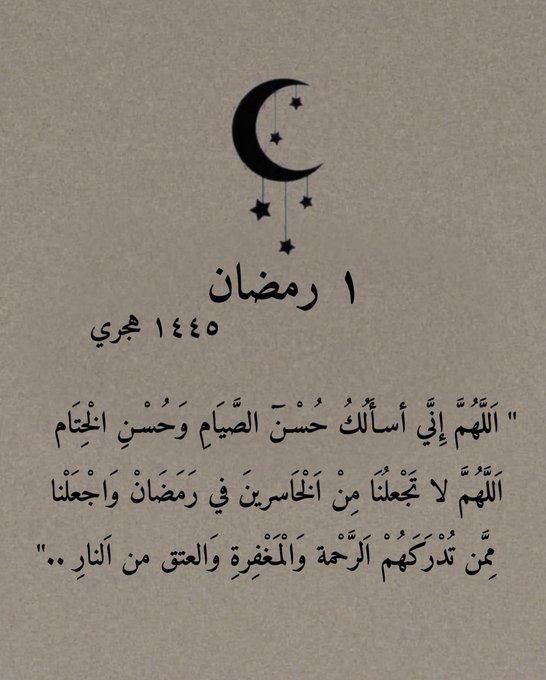 ١ رمضان
١٤٤٥ هجري
" اَللَّهُمَّ إِنَّي أسـأَلُكُ حُسْـنَ الصَّيَامِ وَحُسْـنِ الْخِتَام
اَللَّهُمَّ لا تَجْعلُنَا مِنْ اَلْخَاسرينَ في رَمَضَانْ وَاجْعَلْنا
مِمَّن تُدْرَكَهُمْ اَلرَّحْمة وَالْمَغْفِرةِ وَالعتق من اَلنارِ .."